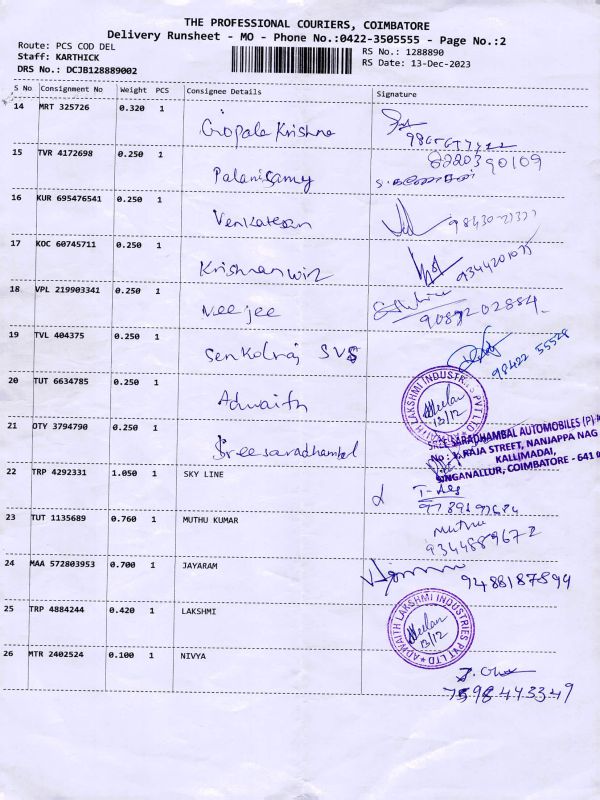 THE PROFESSIONAL COURIERS, COIMBATORE
Delivery Runsheet - MO - Phone No.:0422-3505555 - Page No.:2
Route: PCS COD DEL
Staff: KARTHICK
DRS No.: DCJB128889002
RS No.: 1288890
RS Date: 13-Dec-2023
S No Consignment No Weight PCS Consignee Details Signature
14 MRT 325726 0.320 1 Gopala Krishna
15 TVR 4172698 0.250 1 Palanisamy 8220390109
16 KUR 695476541 0.250 1 Venkatesan
17 KOC 60745711 0.250 1 Krishnan wire 9344201075
18 VPL 219903341 0.250 1 Veejee 9087202884
19 TVL 404375 0.250 1 Senkolraj SVS 98422 55528
20 TUT 6634785 0.250 1 Adwaith
ADWAITH LAKSHMI INDUSTRIES PVT LTD
13/12
21 OTY 3794790 0.250 1 Sreesaradhambal
SREE SARADHAMBAL AUTOMOBILES (P)
RAJA STREET, NANJAPPA NAG
KALLIMADAI,
SINGANALLUR, COIMBATORE - 641 0
22 TRP 4292331 1.050 1 SKY LINE
23 TUT 1135689 0.760 1 MUTHU KUMAR Muthu
9344889672
24 MAA 572803953 0.700 1 JAYARAM 9488187899
25 TRP 4884244 0.420 1 LAKSHMI
ADWAITH LAKSHMI INDUSTRIES PVT LTD
13/12
26 MTR 2402524 0.100 1 NIVYA
7598443349